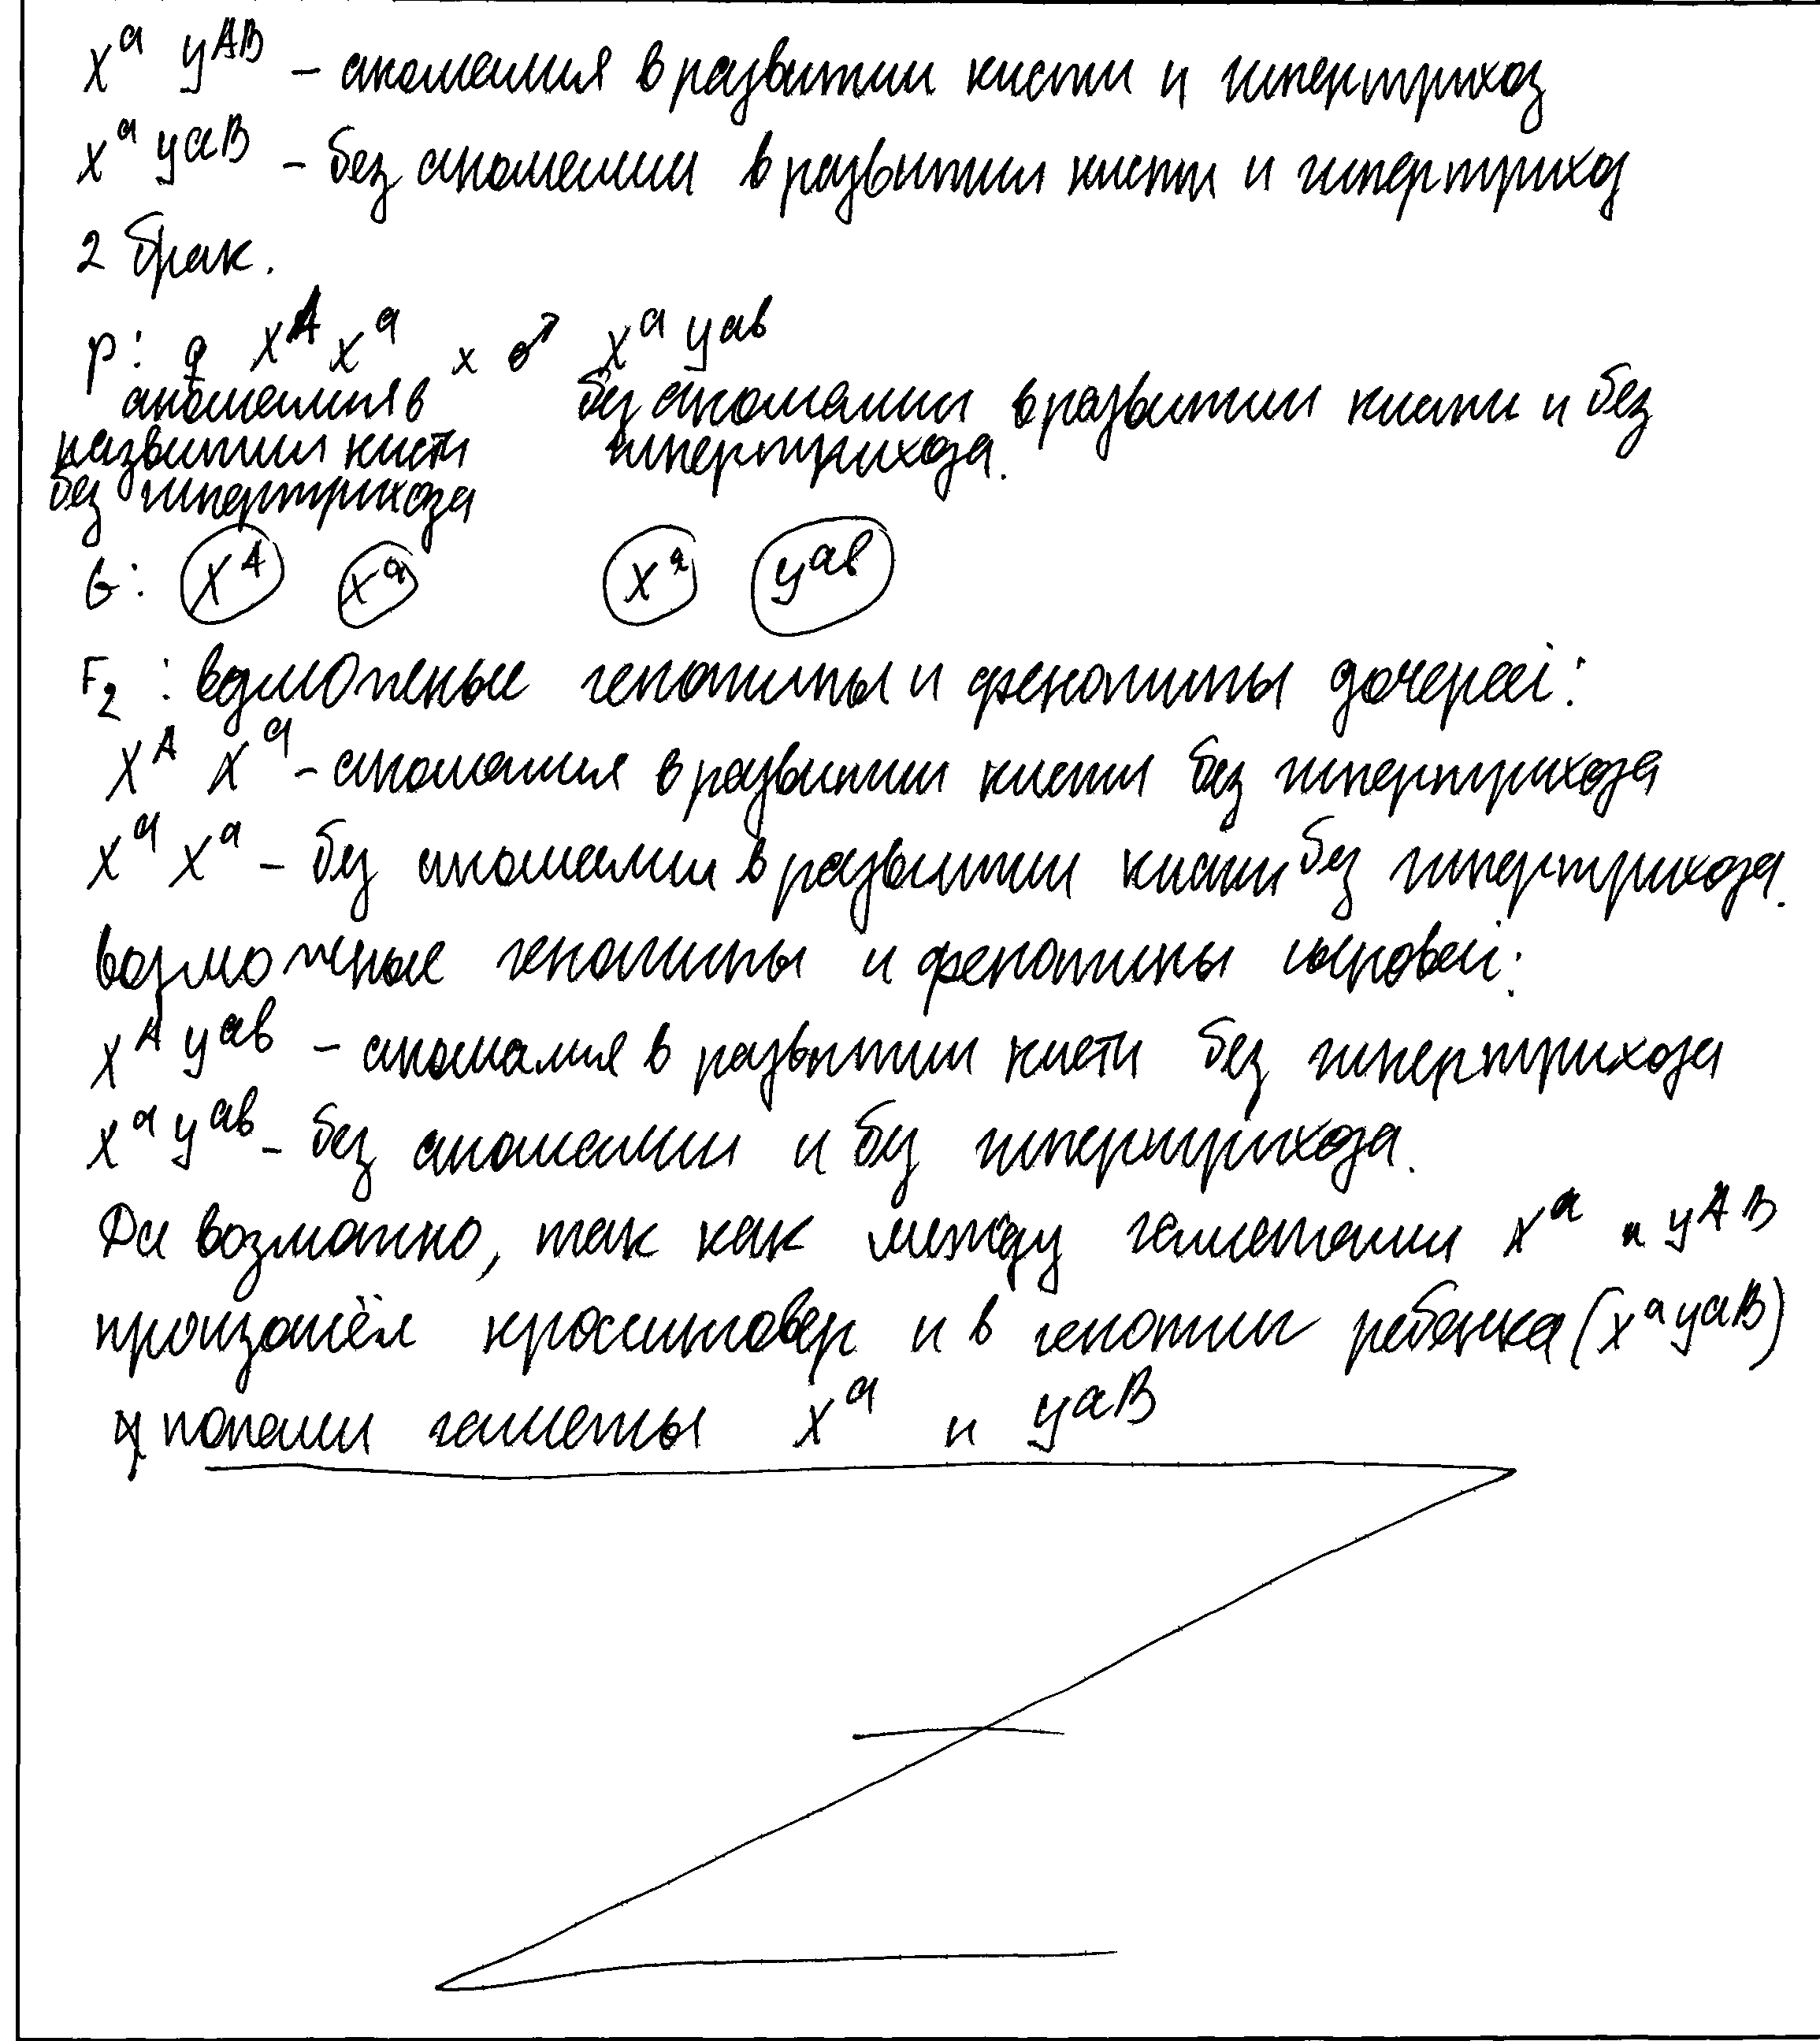 X^a Y^AB – аномалия в развитии кисти и гипертрихоз
X^a Y^aB – без аномалии в развитии кисти и гипертрихоз
2 брак.
P: ♀ X^A X^a x ♂ X^a Y^ab
аномалия в без аномалии в развитии кисти и без
развитии кисти гипертрихоза.
без гипертрихоза
G: X^A X^a X^a Y^ab
F2: возможные генотипы и фенотипы дочерей:
X^A X^a – аномалия в развитии кисти без гипертрихоза
X^a X^a – без аномалии в развитии кисти без гипертрихоза.
возможные генотипы и фенотипы сыновей:
X^A Y^ab – аномалия в развитии кисти без гипертрихоза
X^a Y^ab – без аномалии и без гипертрихоза.
Да возможно, так как между гаметами X^a и Y^AB
произошёл кроссинговер и в генотип ребенка (X^a Y^aB)
попали гаметы X^a и Y^aB